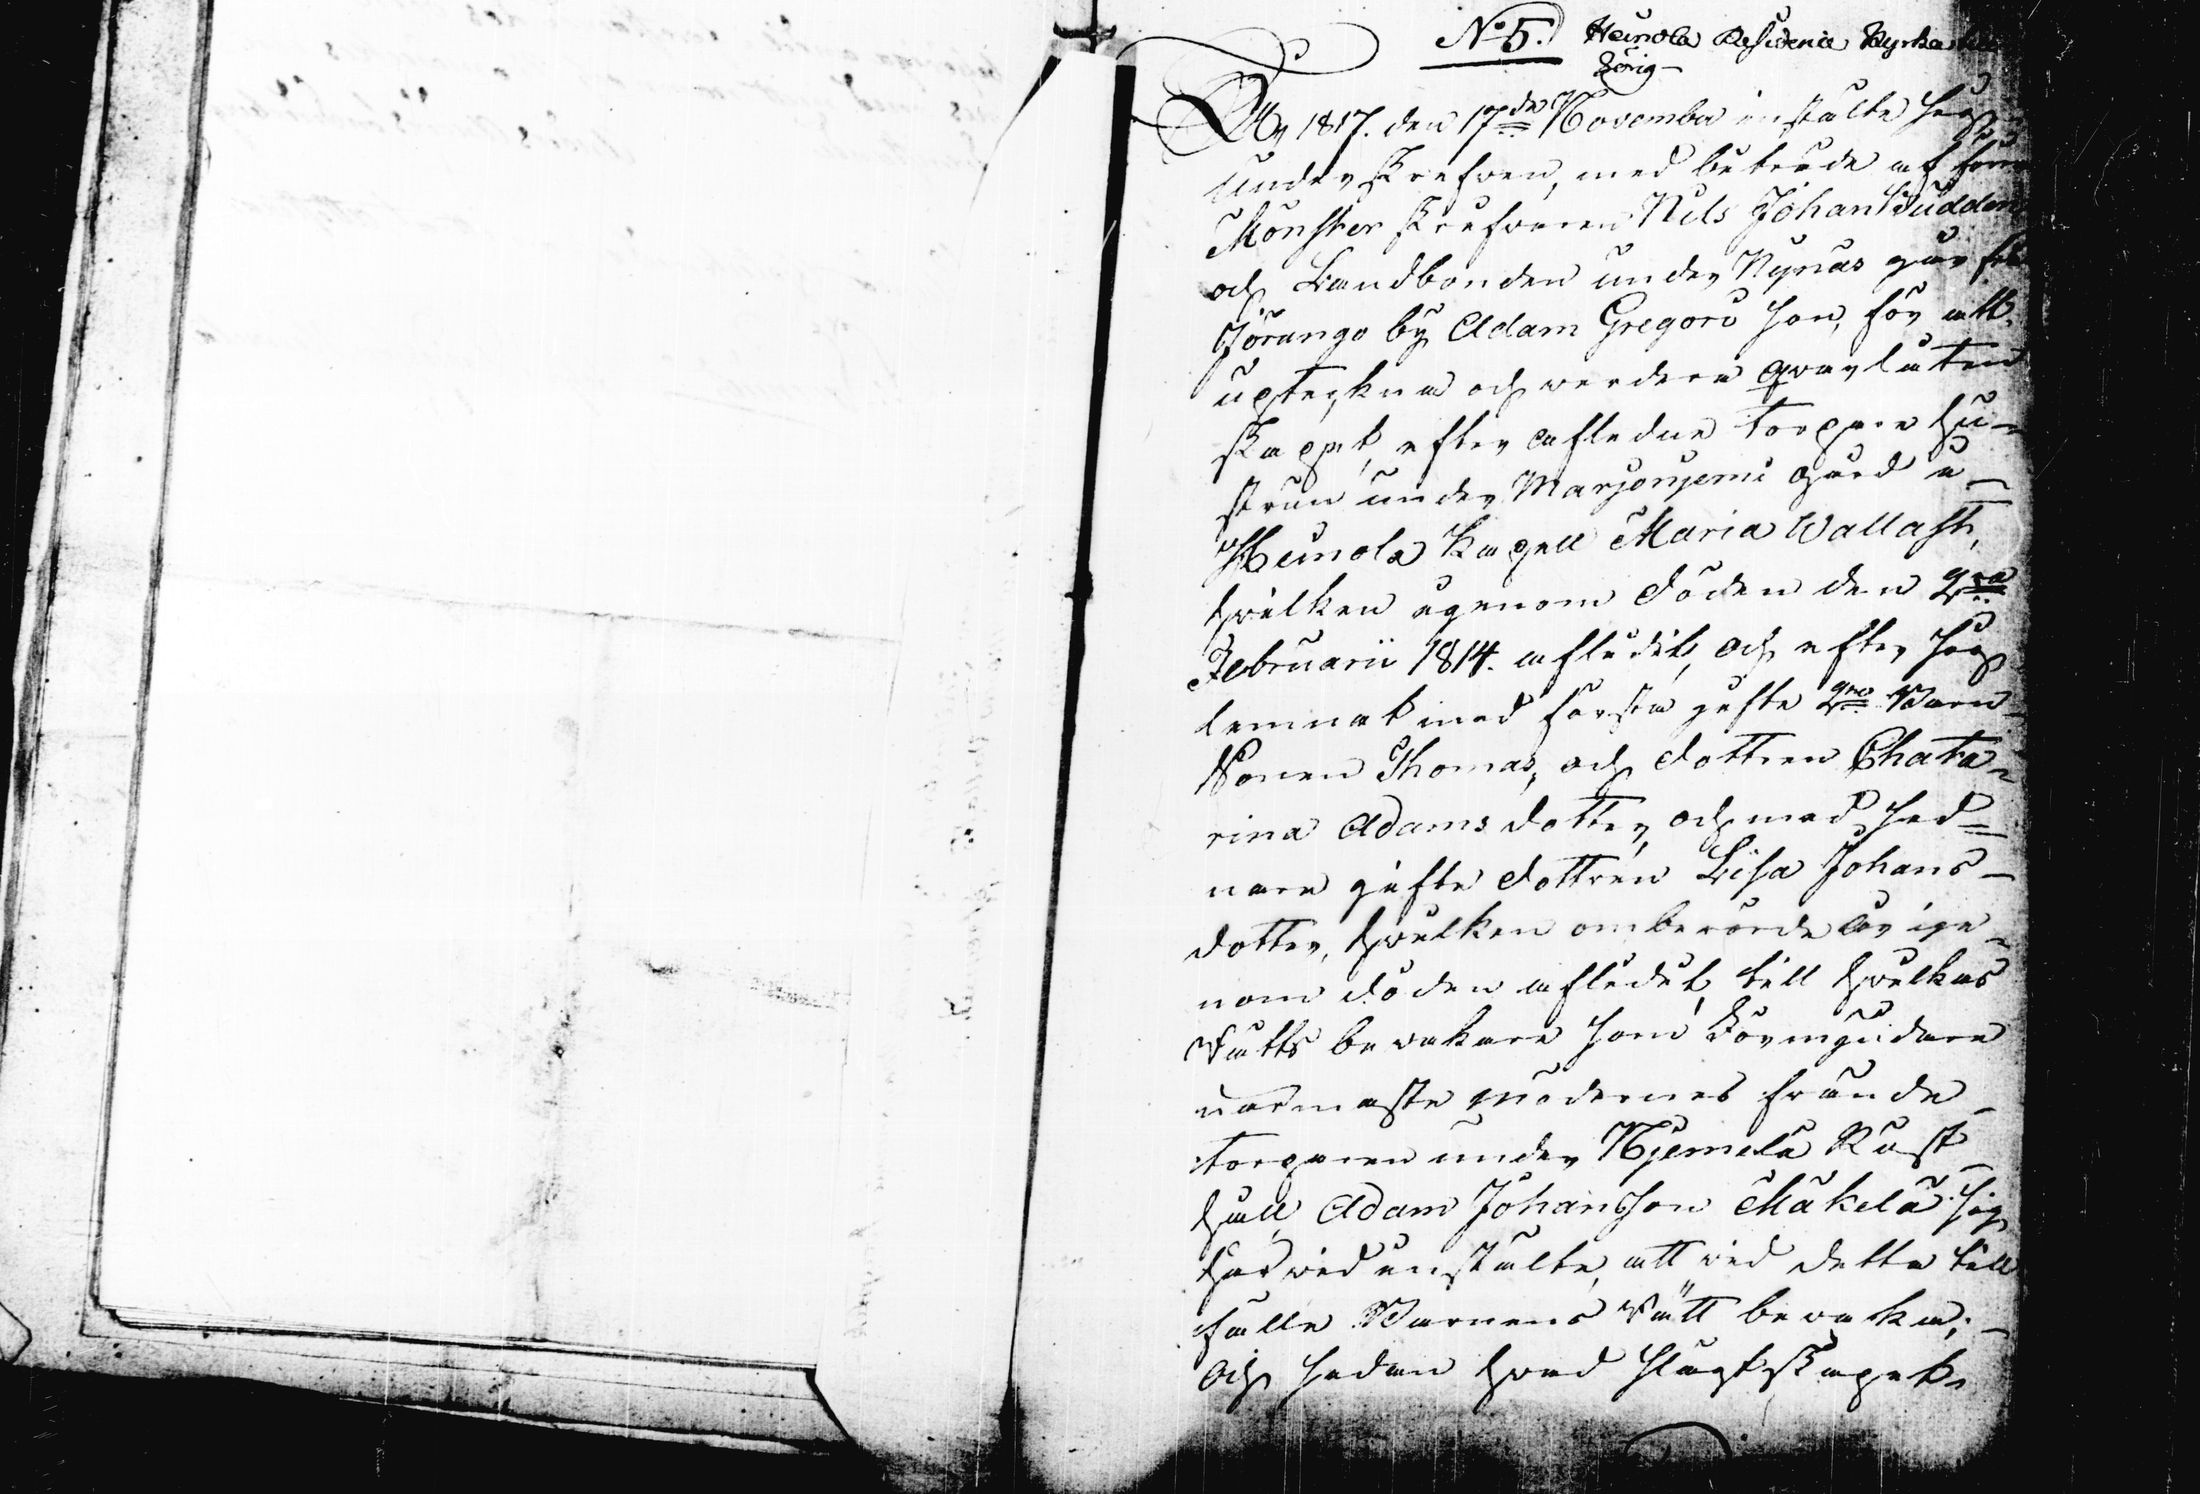 No 5. Heinola Residence Kyrka
År 1817. den 17de Novembr instälte sig
underskrefven, med biträde af
Mönster skrifvaren Nils Johan Sudden
och Landbonden under Nynäs gård
Jörango by Adam Gregori son, för att
upteckna och werdera qwarlåten
skapet, efter aflidne torpare hu-
strun under Marjonjemi gård i
Heinola Kapell Maria Wallast,
hvilken igenom döden den 2dra
Februarii 1814. aflidit, och efter sig
lemnat med första gifte 2ne Barn
Sonen Thomas, och dottren Chata-
rina Adams dotter, och med sed-
nare gifte dottren Lisa Johans-
dotter, hvilken omberörde är ige-
nom döden aflidit, till hvilkas
Rätts bevakare som Förmyndare
närmaste mödernes frände
torparen under Njemelä Rust-
håll Adam Johansson Mäkelä sig
härvid instälte, att vid detta till
fälle Barnens Rätt bevaka;
och sedan hvad slägtskapet